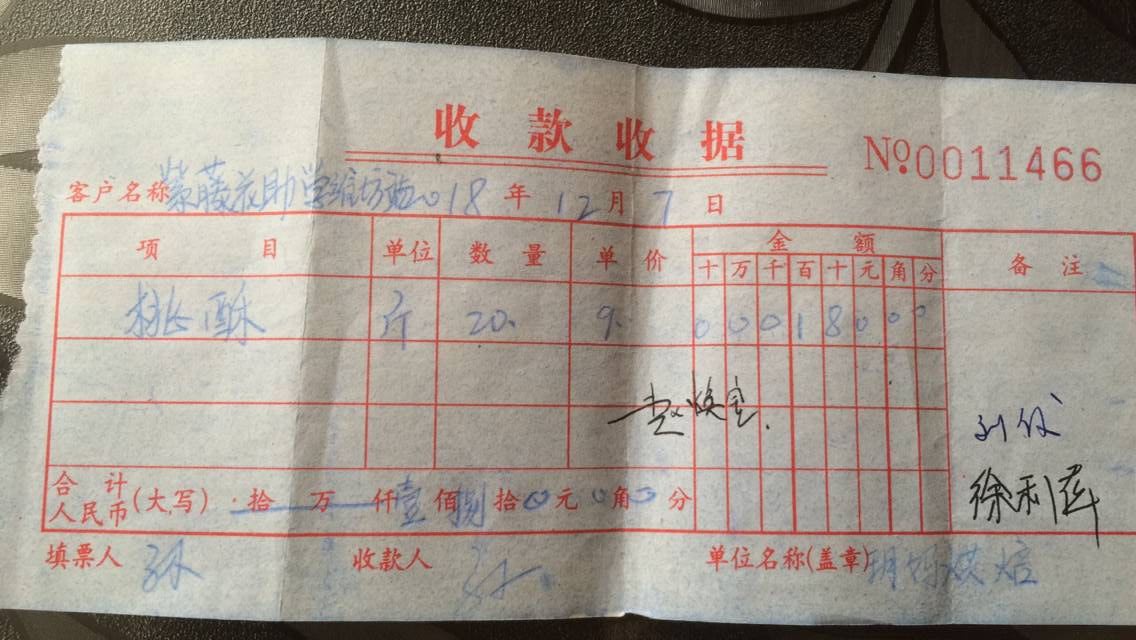 收款收据
№0011466
客户名称 紫藤花助学潍坊站 2018年12月7日
项目 单位 数量 单价 金额 备注
十万千百十元角分
桃酥 斤 20. 9. 00018000
赵焕宝
刘俊
徐利
合计人民币(大写) 拾万仟壹佰捌拾0元0角0分
填票人 孙 收款人 孙 单位名称(盖章) 烘焙